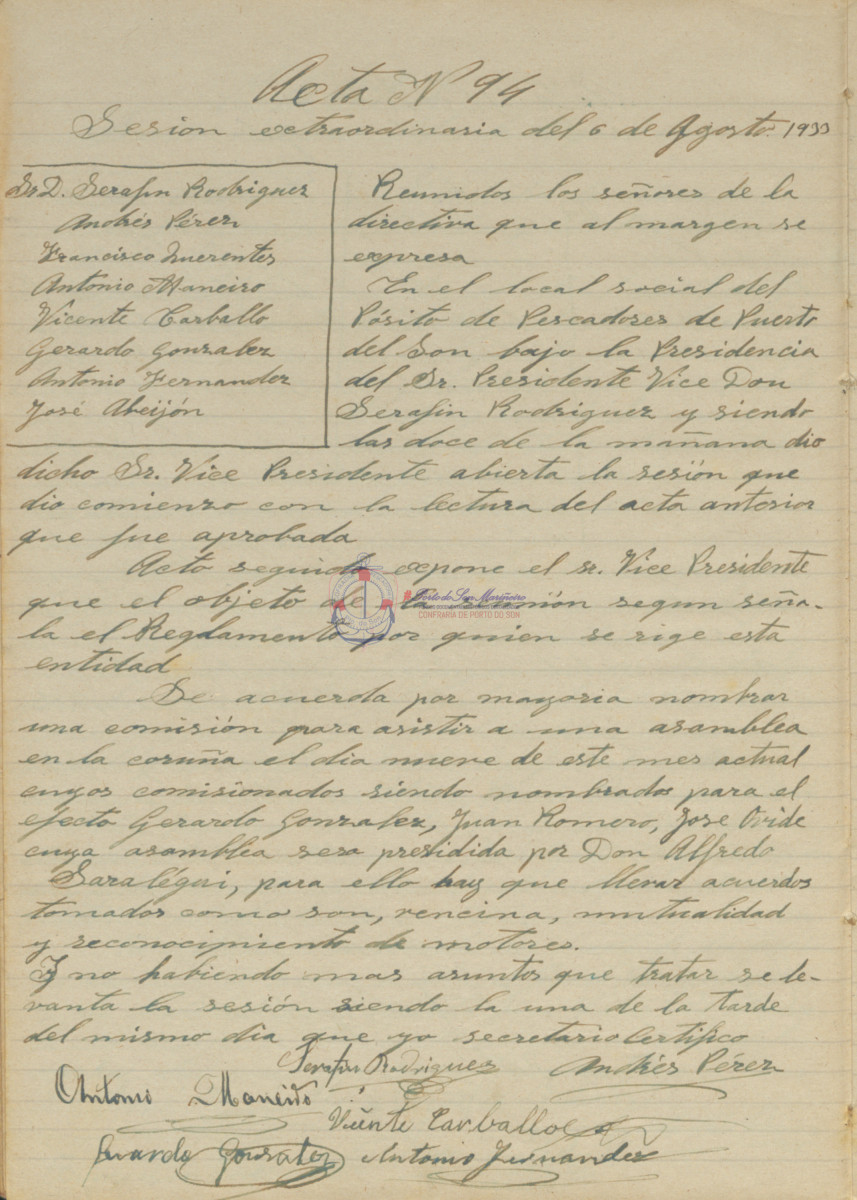 Acta Nº 94
Sesion extraordinaria del 6 de Agosto. 1933
Sr. D. Serafin Rodriguez
Andrés Pérez
Francisco
Antonio Maneiro
Vicente Carballo
Gerardo Gonzalez
Antonio Fernandez
José Abeijón
Reunidos los señores de la
directiva que al margen se
expresa
En el local social del
Pósito de Pescadores de Puerto
del Son bajo la Presidencia
del Sr. Presidente Vice Don
Serafin Rodriguez y siendo
las doce de la mañana dio
dicho Sr. Vice Presidente abierta la sesión que
dio comienzo con la lectura del acta anterior
que fue aprobada
Acto seguido expone el sr. Vice Presidente
que el objeto de la reunión segun seña-
la el Reglamento por quien se rige esta
entidad
Se acuerda por mayoria nombrar
una comisión para asistir a una asamblea
en la coruña el dia nueve de este mes actual
cuyos comisionados siendo nombrados para el
efecto Gerardo Gonzalez, Juan Romero, Jose Ovide
cuya asamblea sera presidida por Don Alfredo
Saralégui, para ello hay que llevar acuerdos
tomados como son, vencina, mutualidad
y reconocimiento de motores.
Y no habiendo mas asuntos que tratar se le-
vanta la sesión siendo la una de la tarde
del mismo dia que yo secretario Certifico
Serafin Rodriguez Andrés Pérez
Antonio Maneiro
Vicente Carballo
Gerardo Gonzalez Antonio Fernandez
Porto do Son Mariñeiro
CONFRARÍA DE PORTO DO SON